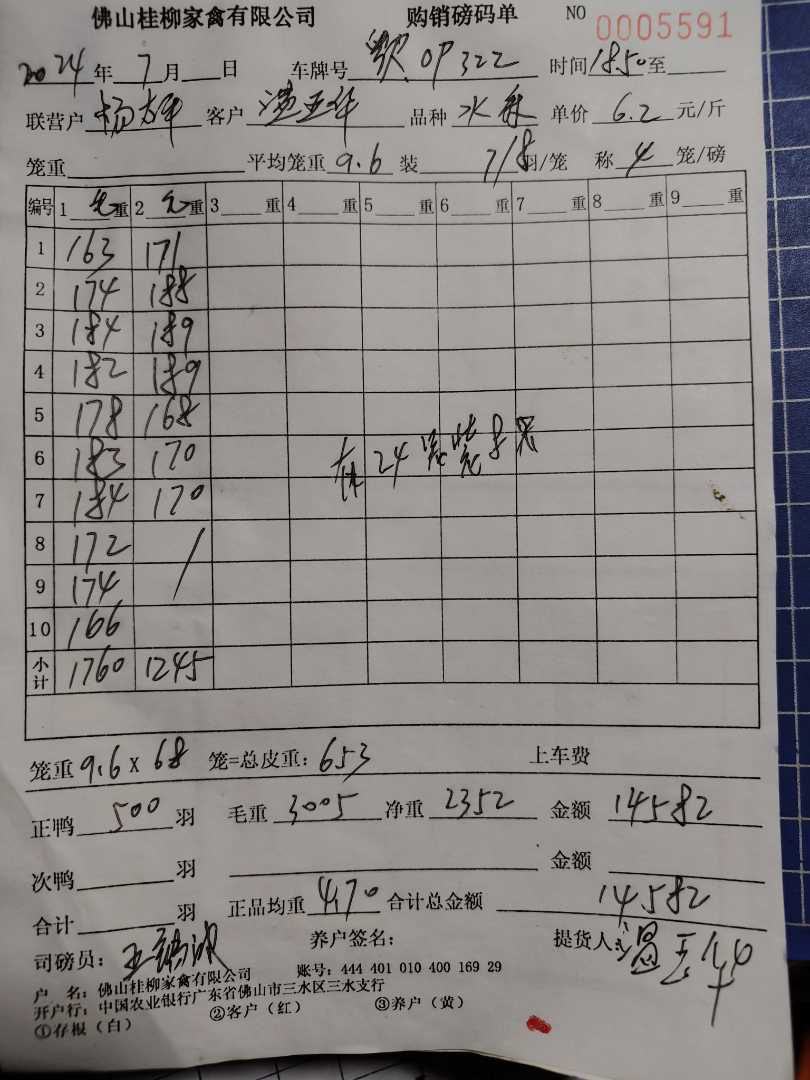 佛山桂柳家禽有限公司 购销磅码单 NO 0005591
2024年 7月 日 车牌号 0P322 时间 1850 至
联营户 杨雄 客户 温玉华 品种 水 单价 6.2 元/斤
笼重 平均笼重 9.6 装 7/8 羽/笼 称 4 笼/磅
编号 1 毛重 2 毛重 3 重 4 重 5 重 6 重 7 重 8 重 9 重
1 163 171
2 174 188
3 184 189
4 182 189
5 178 168
6 183 170
7 184 170
8 172 /
9 174
10 166
24 装 8
小计 1760 1245
笼重 9.6 x 68 笼=总皮重: 653 上车费
正鸭 500 羽 毛重 3005 净重 2352 金额 14582
次鸭 羽 金额
合计 羽 正品均重 4.70 合计总金额 14582
司磅员: 王 养户签名: 提货人: 温玉华
户 名: 佛山桂柳家禽有限公司 账号: 444 401 010 400 169 29
开户行: 中国农业银行广东省佛山市三水区三水支行
①存根（白） ②客户（红） ③养户（黄）